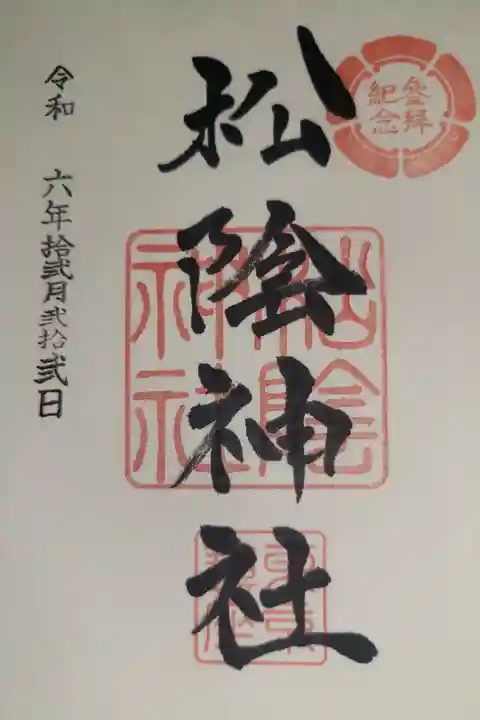 参拜
紀念
松陰神社
松陰
神社
東京
令和 六年拾弐月弐拾弐日